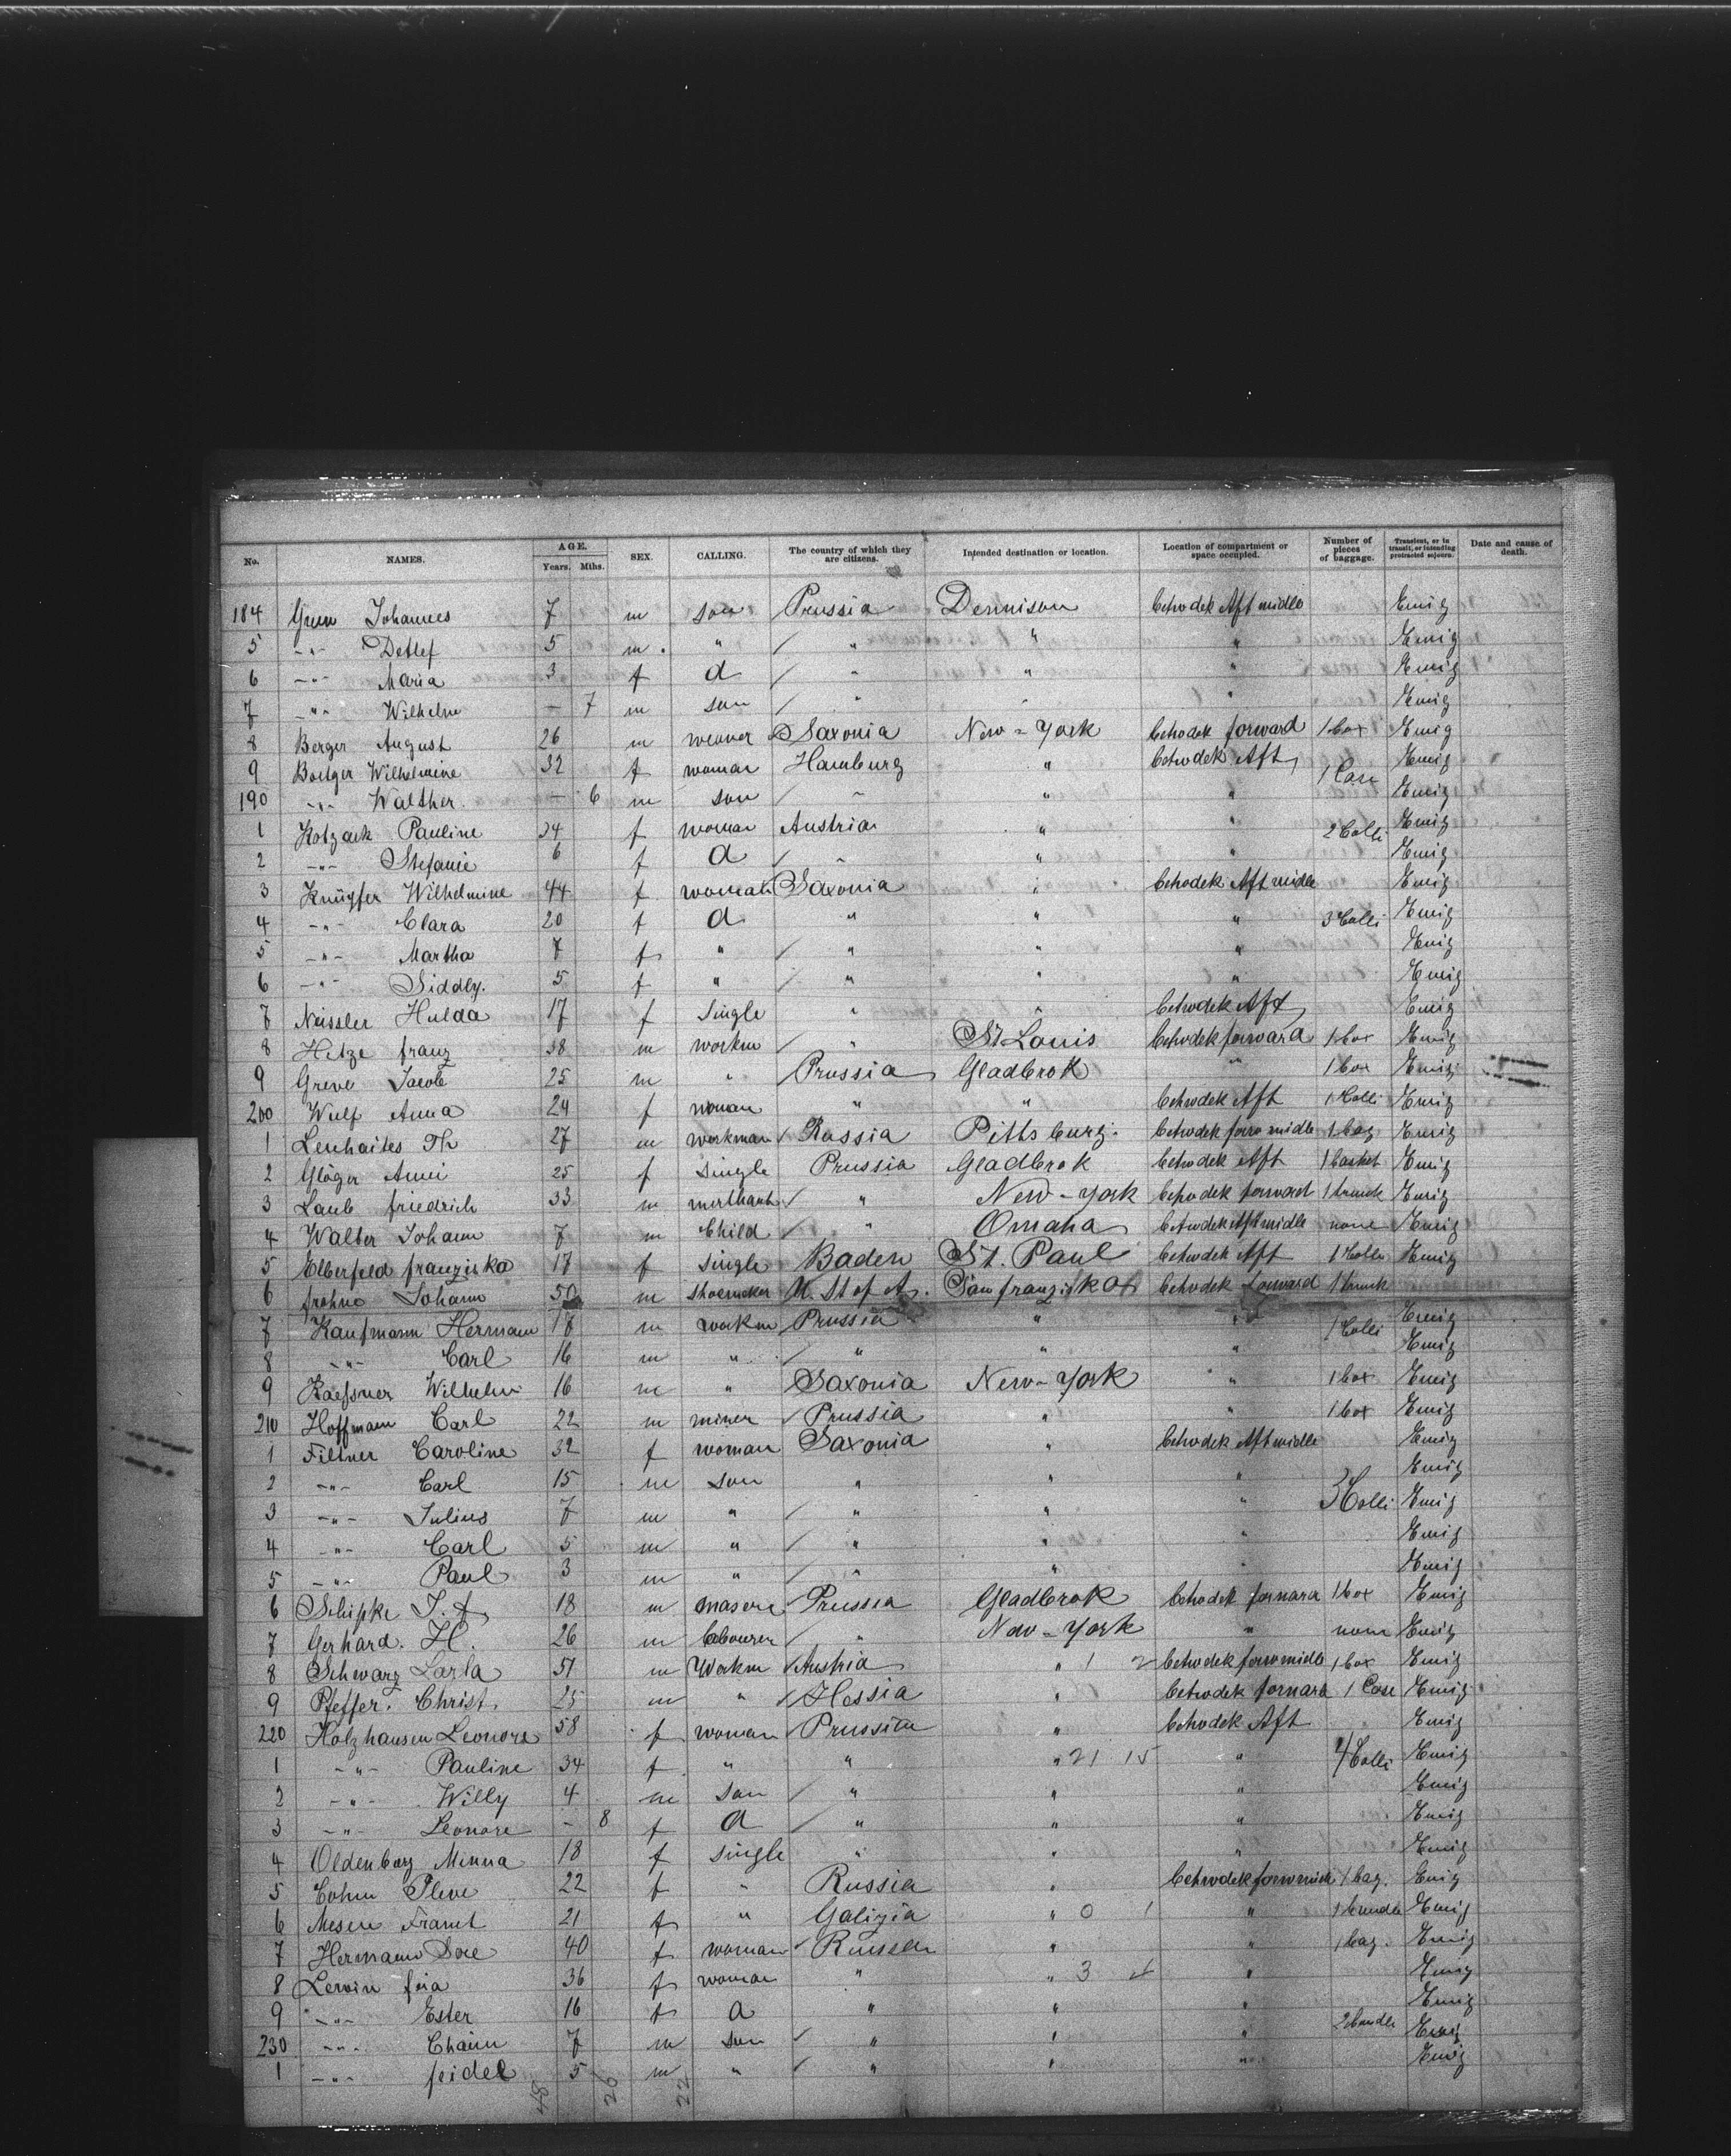 No. NAMES. AGE. Years. Mths. SEX. CALLING. The country of which they are citizens. Intended destination or location. Location of compartment or space occupied. Number of pieces of baggage. Transient, or in transit, or intending protracted sojourn. Date and cause of death.
184 Grew Johannes 7 m son Prussia Dennison betwdek Aft middle Emig
5 -"- Detlef 5 m " / " " " Emig
6 -"- Maria 3 f d / " " " Emig
7 -"- Wilhelm - 7 m son / " " " Emig
8 Berger August 26 m weaver Saxonia New-York betwdek forward 1 box Emig
9 Boetger Wilhelmine 32 f woman Hamburg " betwdek Aft 1 Case Emig
190 -"- Walther - 6 m son / " " " Emig
1 Kotzack Pauline 24 f woman Austria " " 2 Colli Emig
2 -"- Stefanie 6 f d / " " " Emig
3 Knüpfer Wilhelmine 44 f woman Saxonia " betwdek Aft midle Emig
4 -"- Clara 20 f d " " " 3 Colli Emig
5 -"- Martha 7 f " / " " " Emig
6 -"- Siddly. 5 f " / " " " Emig
7 Neissler Hulda 17 f single " " betwdek Aft Emig
8 Hetze franz 38 m workm / " St Louis betwdek forward 1 box Emig
9 Greve Jacob 25 m " Prussia Gladbrok " 1 box Emig
200 Wulf Anna 24 f woman " " betwdek Aft 1 Colli Emig
1 Lenhaites Th 27 m workman / Russia Pittsburg. betwdek forw midle 1 bag Emig
2 Glöger Anni 25 f single Prussia Gladbrok betwdek Aft 1 basket Emig
3 Laub friedrich 33 m merthant / " New-York betwdek forward 1 trunk Emig
4 Walter Johann 7 m Child / " Omaha betwdek Aft midle none Emig
5 Elberfeld franziska 17 f single Baden St. Paul betwdek Aft 1 Colli Emig
6 frohne Johann 50 m shoemcker U. St of A. San franzisko betwdek forward 1 trunk
7 Kaufmann Hermann 18 m workm Prussia " " 1 Colli Emig
8 -"- Carl 16 m " / " " " Emig
9 Kaessner Wilhelm 16 m " Saxonia New-York " 1 box Emig
210 Hoffmann Carl 22 m miner / Prussia " " 1 box Emig
1 Filtner Caroline 32 f woman Saxonia " betwdek Aft midle Emig
2 -"- Carl 15 m son " " " Emig
3 -"- Julius 7 m " / " " " 3 Colli Emig
4 -"- Carl 5 m " / " " " Emig
5 -"- Paul 3 m " / " " " Emig
6 Schipke J. A. 18 m Prussia Gladbrok betwdek forwara 1 box Emig
7 Gerhard. H. 26 m labourer / " New-York " none Emig
8 Schwarz 51 m Workm / Austria " 1 2 betwdek forw midle 1 box Emig
9 Pfeffer. Christ. 25 m " / Hessia " betwdek forwara 1 Case Emig
220 Holzhausen Leonore 58 f woman Prussia " betwdek Aft Emig
1 -"- Pauline 34 f " " " 21 15 " 4 Colli Emig
2 -"- Willy 4 m son / " " " Emig
3 -"- Leonore - 8 f d / " " " Emig
4 Oldenburg Minna 18 f single " " " Emig
5 Cohm 22 f " Russia " betwdek forw midle 1 bag. Emig
6 21 f " Galizia " 0 1 " 1 bundle Emig
7 Hermann 40 f woman / Russia " " 1 bag. Emig
8 Lewin 36 f woman " " 3 " Emig
9 -"- Ester 16 f d " " " Emig
230 -"- Chaim 7 m son / " " " 2 bundle Emig
1 -"- feidel 5 m " / " " " Emig
48 26 22